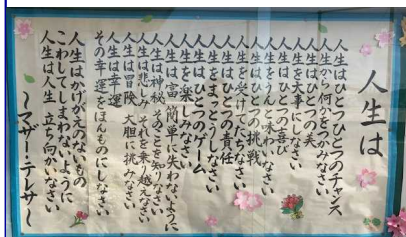 人生は
人生はひとつのチャンス
人生から何かをつかみなさい
人生はひとつの美
人生を大事にしなさい
人生はひとつの喜び
人生をうんと味わいなさい
人生はひとつの挑戦
人生を受けて立ちなさい
人生はひとつの責任
人生をまっとうしなさい
人生はひとつのゲーム
人生を楽しみなさい
人生は富 簡単に失わないように
人生は神秘 そのことを知りなさい
人生は悲しみ それを乗り越えなさい
人生は冒険 大胆に挑みなさい
人生は幸運
その幸運をほんものにしなさい
人生はかけがえのないもの
こわしてしまわないように
人生は人生 立ち向かいなさい
～マザー・テレサ～